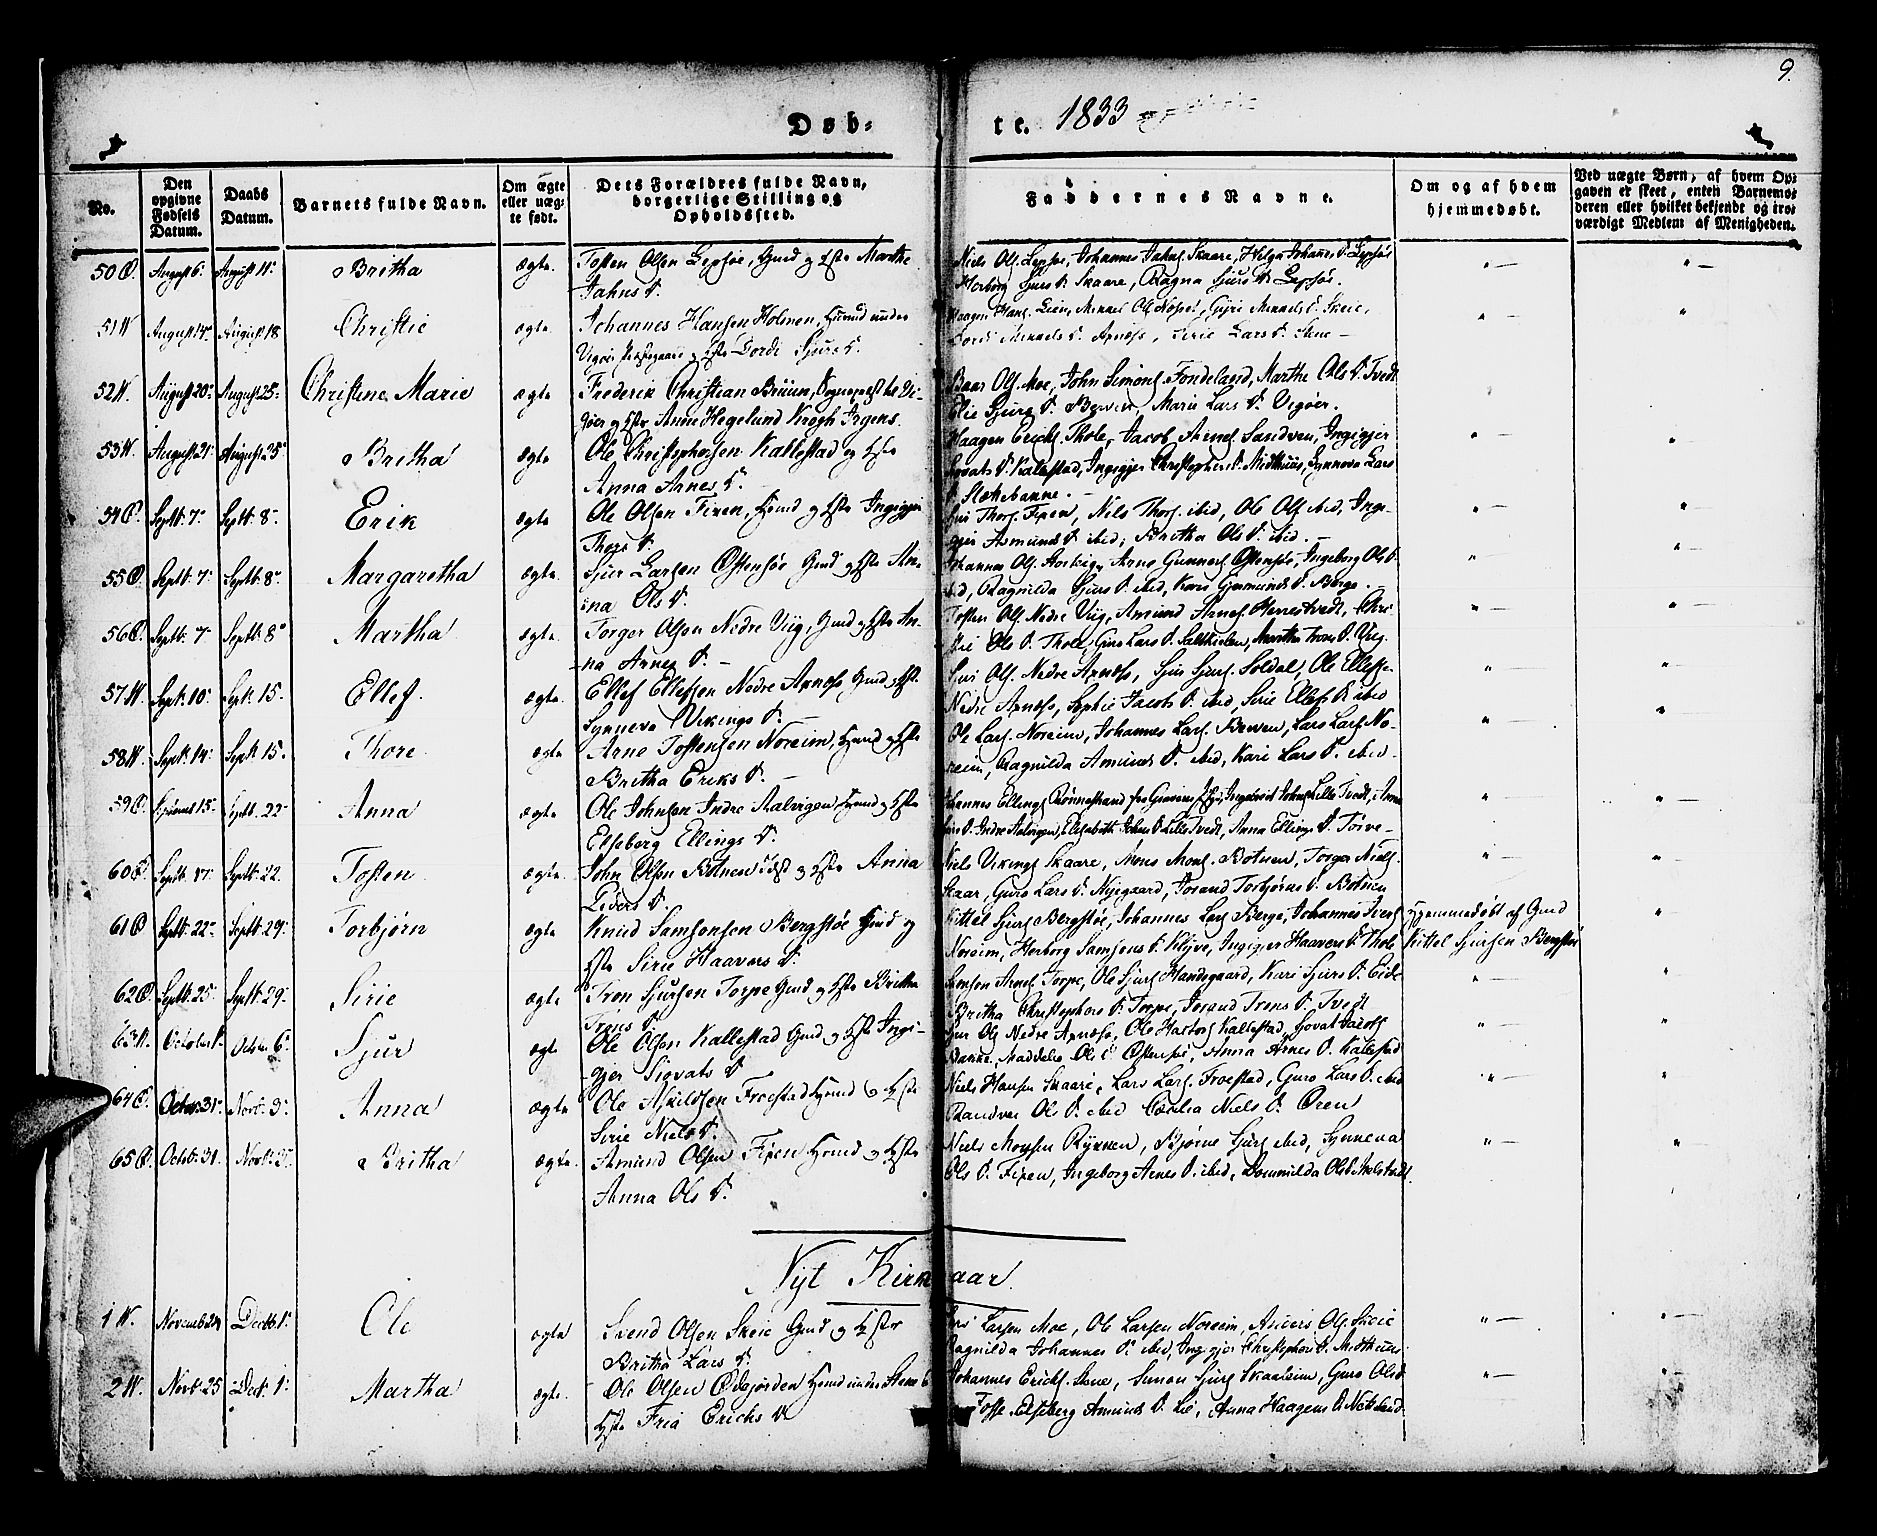 9.
Døb-
te. 1833
No.
Den opgivne Fødsels Datum.
Daabs Datum.
Barnets fulde Navn.
Om ægte eller uægte født.
Dets Forældres fulde Navn, borgerlige Stilling og Opholdssted.
Faddernes Navne.
Om og af hvem hjemmedøbt.
Ved uægte Børn, af hvem Opgaven er skeet, enten Barnemoderen eller hvilket bekjendt og troværdigt Medlem af Menigheden.
50 August 6. August 11. Britha ægte Tosten Olsen Lepsøe, Gmd og Hstr Marthe
Jahns D.
Niels Ols. Lepsøe, Johannes Jahns. Skaare, Helga Johanes D. Lepsøe
Herborg Sjurs D. Skaare, Ragna Sjurs D. Lepsøe.
51 August 14. August 18 Christie ægte Johannes Hansen Holmen, Huusmd under
Vigøer Præstegaard og Hstr Dordi Sjurs D.
Dordi Mikkels D. Arnæss, Sirie Lars D. Stene
52 August 20. August 25. Christense Marie ægte Frederik Christian Bruun, Sogneprest til Vi-
gøer og Hstr Anne Hegelund Krogh Irgens.
Baar Ols. Moe, John Simons. Fondeland, Marthe Ols D. Tvedt
Elie Sjurs D. Berven, Marie Lars D. Vigøer.
53 August 21. August 25. Britha ægte Ole Christophersen Kallestad og Hstr
Anna Arnes D.
Haagen Erichs. Thole, Jacob Arnes. Sandven, Ingigjer
Sjovats D. Kalestad, Ingigjer Christophers D. Midthuus, Synneva Lars
D. Slættebanne.
54 Septb. 7. Septb. 8. Erik ægte Ole Olsen Fixen, Hmd og Hstr Ingigjer
Thors D.
Thors. Fixen, Nils Thors. ibid, Ole Ols. ibid, Inge-
gjer Asmunds D. ibid, Britha Ols D. ibid.
55 Septb. 7. Septb. 8. Margaretha ægte. Sjur Larsen Østensøe Gmd og Hstr An-
na Ols D.
Johannes Ols. Aarhig, Arne Gunners. Østensøe, Ingeborg Ols D.
ibid, Ragnilda Sjurs D. ibid, Kari Gjermunds D. Berge.
56 Septb. 7. Septb. 8. Martha ægte. Torger Olsen Nedre Viig, Gmd og Hstr An-
na Arnes D.
Tosten Ols. Nedre Viig, Amund Arnes. Herrestvedt, Chri-
stie Ols D. Thole, Guro Lars D. Saltkielen, Martha Trons D. Viig.
57 Septb. 10. Septb. 15. Ellef. ægte. Ellef Ellefsen Nedre Arnæss Gmd og Hstr.
Synneva Vikings D.
Sjur Ols. Nedre Arnæss, Sjur Sjurs. Soldal, Ole Ellefs.
Nedre Arnæss, Sophie Jacobs D. ibid, Sirie Ellefs D. ibid
58 Septb. 14. Septb. 15. Thore. ægte. Arne Tostensen Noreim, Huusmd og Hstr
Britha Eriks D.
Ole Lars. Noreim, Johannes Lars. Berven, Lars Lars. No-
reim, Ragnilda Amunds D. ibid, Kari Lars D. ibid.
59 Septb. 15. Septb. 22 Anna ægte Ole Johnsen Indre Aalvigen, Huusmd og Hstr
Elseberg Ellings D.
D. Indre Aalvigen, Elisabeth Johns D. Lille Tvedt, Anna Ellings D. Torve
60 Septb. 17. Septb. 22. Tosten. ægte. John Olsen Botnen og Hstr Anna
Niels Vikings. Skaare, Mons Mons. Botnen, Torger Niels.
Skaar, Guro Lars D. Nyegaard, Jorand Torbjørns D. Botnen
61 Septb. 22. Septb. 29. Torbjørn ægte. Knud Samsonsen Bergstøe Gmd og
Hstr Sirie Haavers D.
Kittel Sjurs. Bergstøe, Johannes Lars. Berge, Johannes Ivers.
Noreim, Herborg Samsons D. Klyve, Ingiger Haavers D. Thole
Hjemmedøbt af Gmd
Kittel Sjursen Bergstøe
62 Septb. 25. Septb. 29. Sirie ægte Tron Sjursen Torpe Gmd og Hstr Britha
Trons D.
Samson Arnes. Torpe, Ole Sjurs. Handegaard, Kari Sjurs D. Eide
Britha Christophers D. Torpe, Jorand Trons D. Tvedt
63 October Octob. 6. Sjur ægte Ole Olsen Kallestad Gmd og Hstr Ingi-
gjer Siovats D
Sjur Ols. Nedre Arnæss, Ole Kallestad, Sjovat Jacobs.
Banne, Maddelie Ols D Østensøe, Anna Arnes D. Kallestad
64 Octob. 31. Novb. 3. Anna ægte Ole Askildsen Froestad Huusmd og Hstr
Sirie Niels D.
Niels Hansen Skaare, Lars Lars. Froestad, Guro Lars D. ibid
Randver Ols D. ibid Cecilia Niels D. Øren
65 Octob. 31. Novb. 3. Britha ægte. Amund Olsen Fixen Huusmd og Hstr
Anna Ols D.
Niels Moysen Rykken, Bjørne Sjurs. ibid, Synneva
Ols D. Fixen, Ingeborg Arnes D. ibid, Dommilda Ols D.
Nyt Kirkeaar.
1 Novemb. 24 Decb. 1. Ole ægte Svend Olsen Skeie Gmd og Hstr
Britha Lars D.
Larsen Moe, Ole Larsen Noreim, Anders Ols. Skeie
Ragnilda Johannes D. ibid, Ingigjer Christophers D. Midthuus
2 Novb. 25 Decb. 1. Martha ægte. Ole Olsen Ødejorden Huusmd under Stene og
Hstr Fria Erichs D
Johannes Erichs. Stene, Simon Sjurs. Skaaleim, Guro Ols D.
Fosse, Elseberg Amunds D. Lie, Anna Haagens D. Netteland